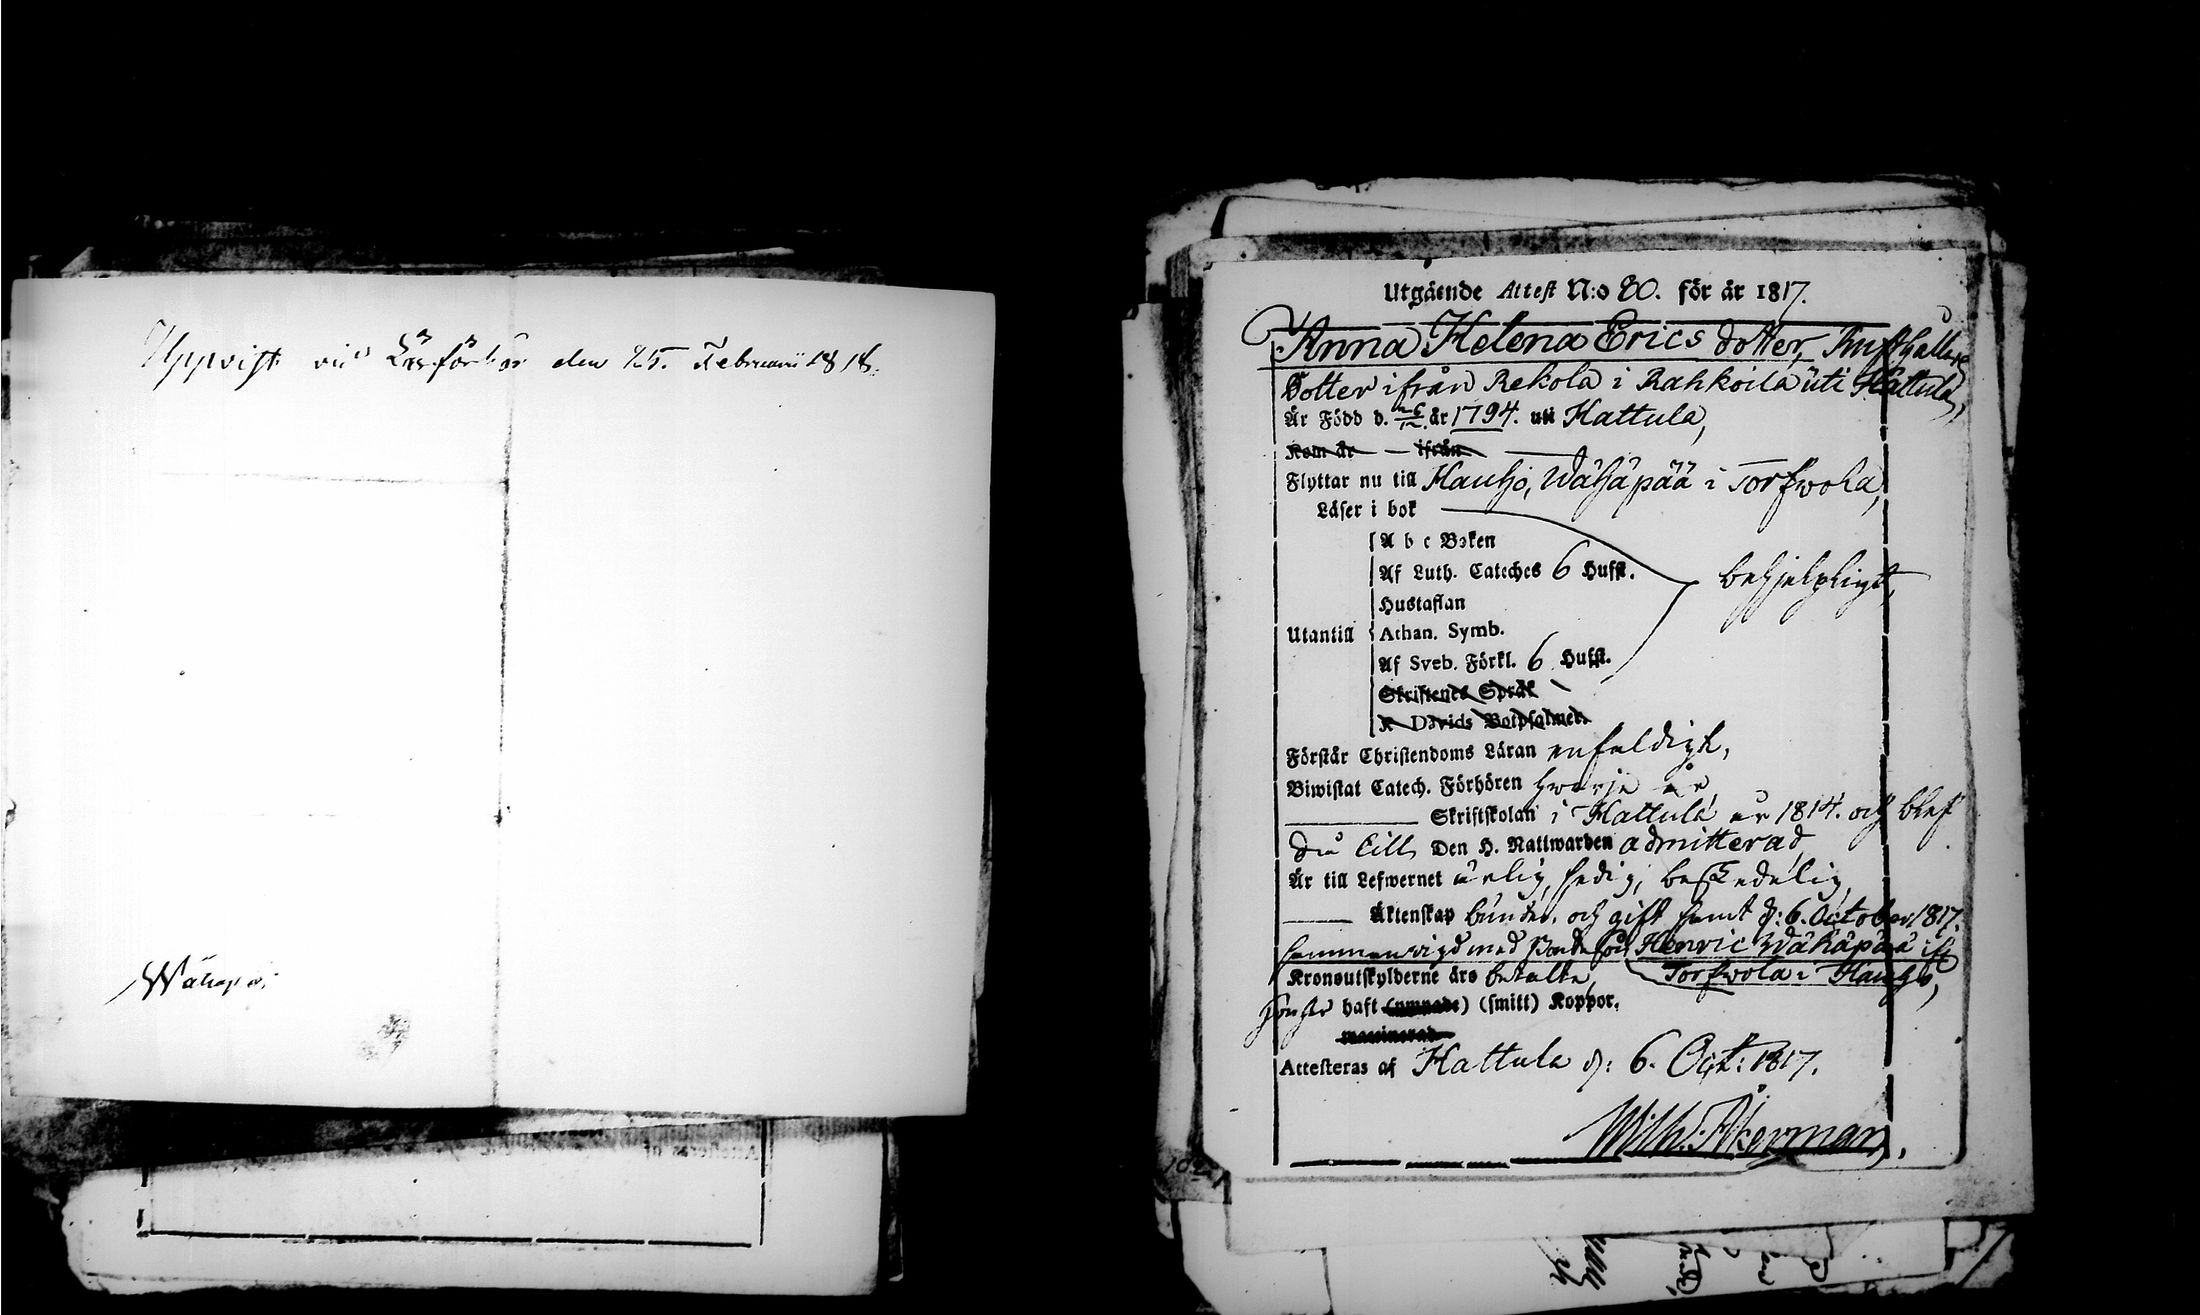 Uppvist vid Läsförhör den 25. Februarii 1818.
Wähäpä.
Utgående Attest N:o 80. för år 1817.
Anna Helena Erics dotter, Rusthållare
Dotter ifrån Rekola i Rahkoila uti Hattula,
Är Född d. år 1794. uti Hattula,
Kom år — ifrån
Flyttar nu till Hauho, Wähäpää i Torfwola,
Läser i bok
A b c Boken
Af Luth. Cateches 6 Hufst. behjelpligt,
Hustaflan
Utantill Athan. Symb.
Af Sveb. Förkl. 6 Hufst.
Skriftenes Språk
K Davids Botpsalmer.
Förstår Christendoms Läran enfaldigt,
Biwistat Catech. Förhören hwarje år,
Skriftskolan i Hattula år 1814. och blef
då till Den H. Nattwarden admitterad
Är till Lefwernet ärlig, sedig, beskedelig,
Äktenskap bunden, och gift samt d: 6. October 1817.
sammanvigd med Bondeson Henric Wähäpää ifr
Kronoutskylderne äro betalte, Torfwola i Hauho,
haft (smitt) Koppor.
Attesteras af Hattula d: 6. Oct: 1817.
Wilh: Åkerman.